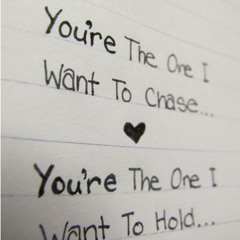 You're The One I
Want To Chase...
You're The One I
Want To Hold...